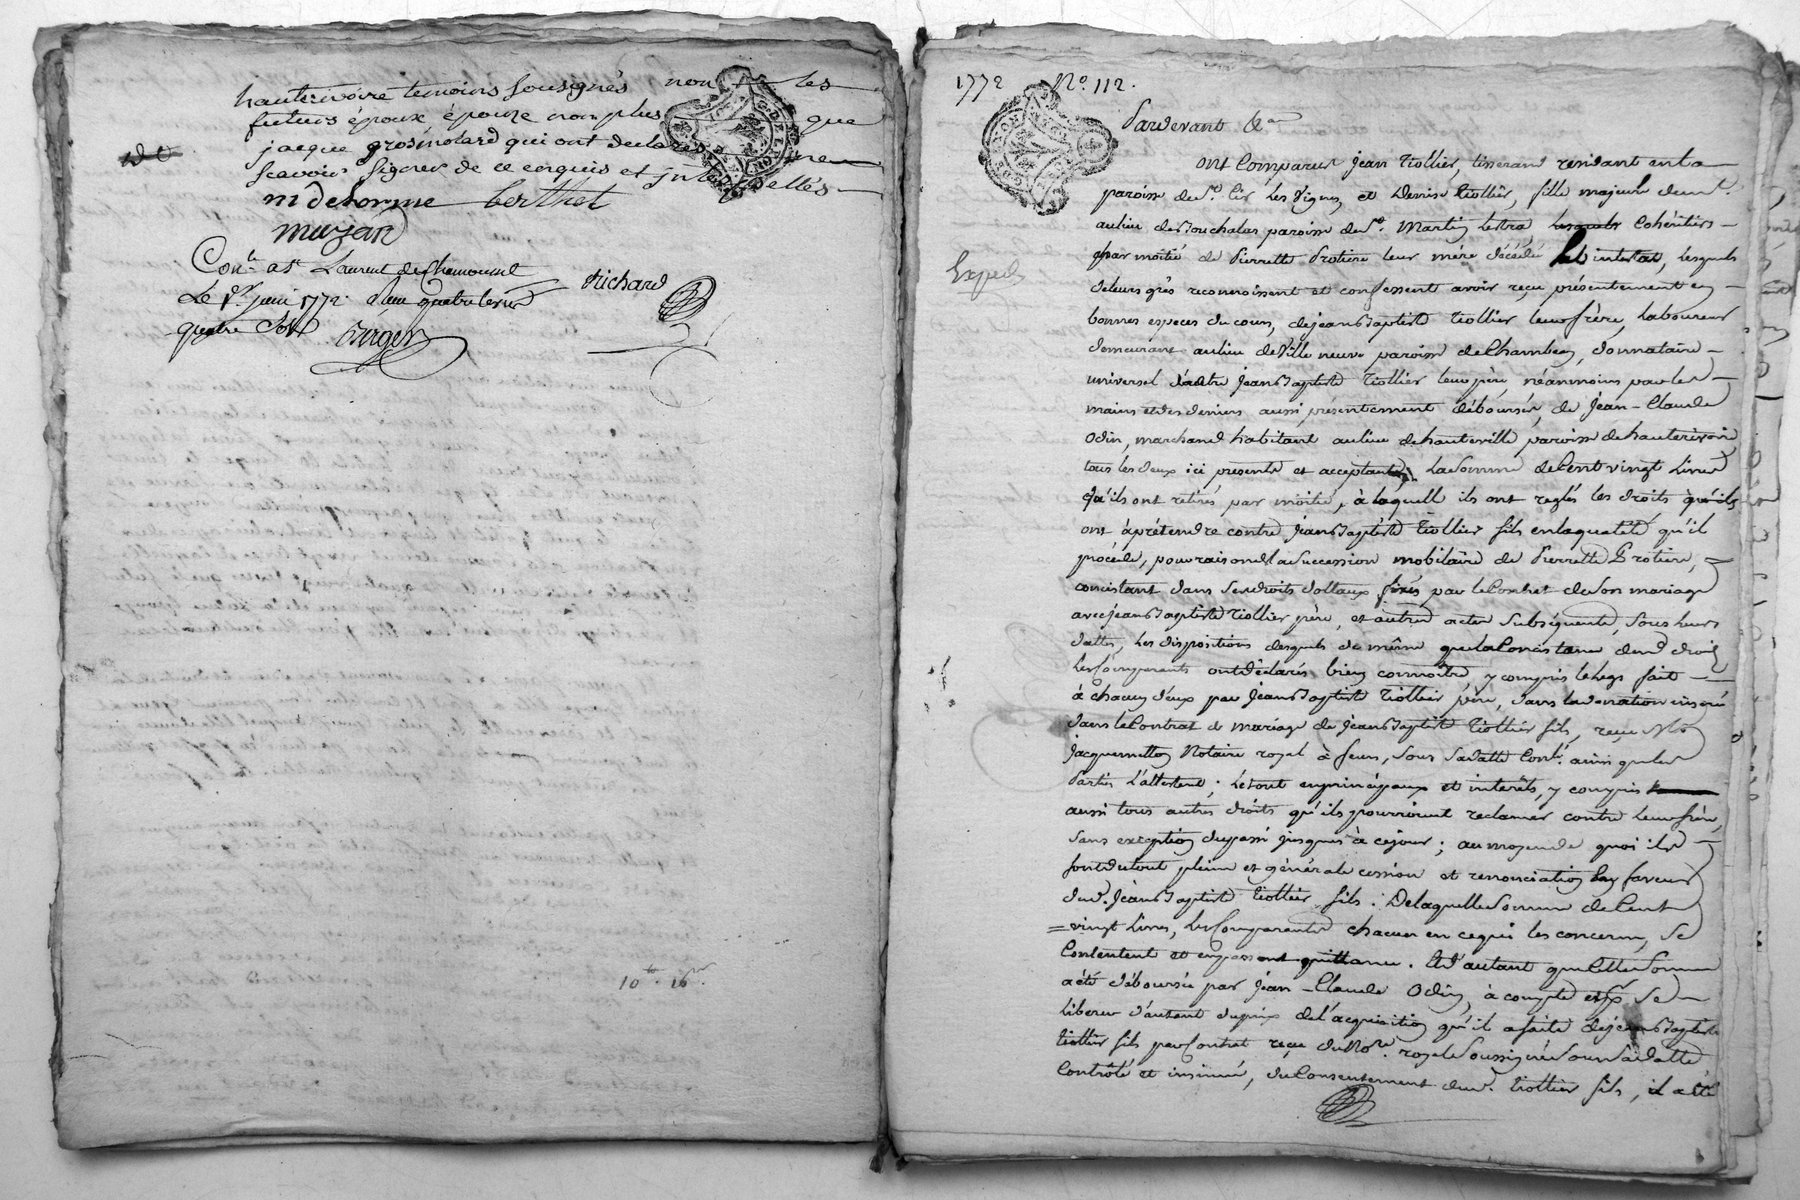 hauterivoire temoins sousignés non les
futurs époux épouze non plus que
jacque grosmolard qui ont declaré ne
scavoir signer de ce enquis et interpellés
m delorme berthet
mujard
Con.lé a St Laurent de Chamousset
Le 1.er juin 1772. Reçu quatre livres
quatre sols
richard
10.tt 16.s
1772 N.o 112.
Pardevant &a
ont Comparus Jean Tiollier, tisserand residant en la
paroisse de S.t Cir les Vignes, et Denise Tiollier, fille majeure dem.t
au lieu de Bouchalas paroisse de S.t Martin Lestra, Cohéritiers
par moitié de Pierrette Protiere leur mére décédée ab intestat, lesquels
de leurs grés reconnoissent et confessent avoir reçu présentement en
bonnes especes du cours, de jean Baptiste Tiollier leur frère, laboureur
demeurant au lieu de Ville neuve paroisse de Chambeon, donnataire
universel d'autre Jean Baptiste Tiollier leur père, néanmoins par les
mains et des deniers aussi présentement déboursés, de Jean-Claude
Odin, marchand habitant au lieu de hauteville paroisse de hauterivoire
Exped.
tous les deux ici présents et acceptants, la somme de Cent vingt Livres
qu'ils ont retirés par moitié, à laquelle ils ont reglés les droits qu'ils
ont à prétendre contre Jean Baptiste Tiollier fils en la qualité qu'il
procede, pour raison de la succession mobiliaire de Pierrette Protiere,
consistant dans ses droits dottaux fixés par le Contrat de son mariage
avec jean Baptiste Tiollier père, et autres actes subséquents, sous leurs
dattes, les dispositions desquels de même que la Consistance desd. droits
les Comparants ont déclarés bien connoitre, y compris le legs fait
à chacun d'eux par Jean Baptiste Tiollier père, dans la donation insérée
dans le Contrat de mariage de Jean Baptiste Tiollier fils, reçu M.e
Jacquemetton Notaire royal à feurs, sous sa datte Cont.lé ainsi que les
Parties l'attestent; le tout en principaux et intérêts, y compris
aussi tous autres droits qu'ils pourroient reclamer contre leur frère,
sans exception du passé jusques à ce jour; au moyen de quoi ils
font du tout pleine et générale cession et renonciation en faveur
dud. Jean Baptiste Tiollier fils. De laquelle somme de Cent
vingt Livres, les Comparants chacun en ce qui les concerne, se
Contentent et en passent quittance. Et d'autant que cette somme
a été déboursée par Jean-Claude Odin, à compte et p.r se
liberer d'autant du prix de l'acquisition qu'il a faite de jean Baptiste
Tiollier fils par Contrat reçu du No.re royal soussigné sous sa datte
Contrôlé et insinué, du Consentement dud. Tiollier fils, il a été